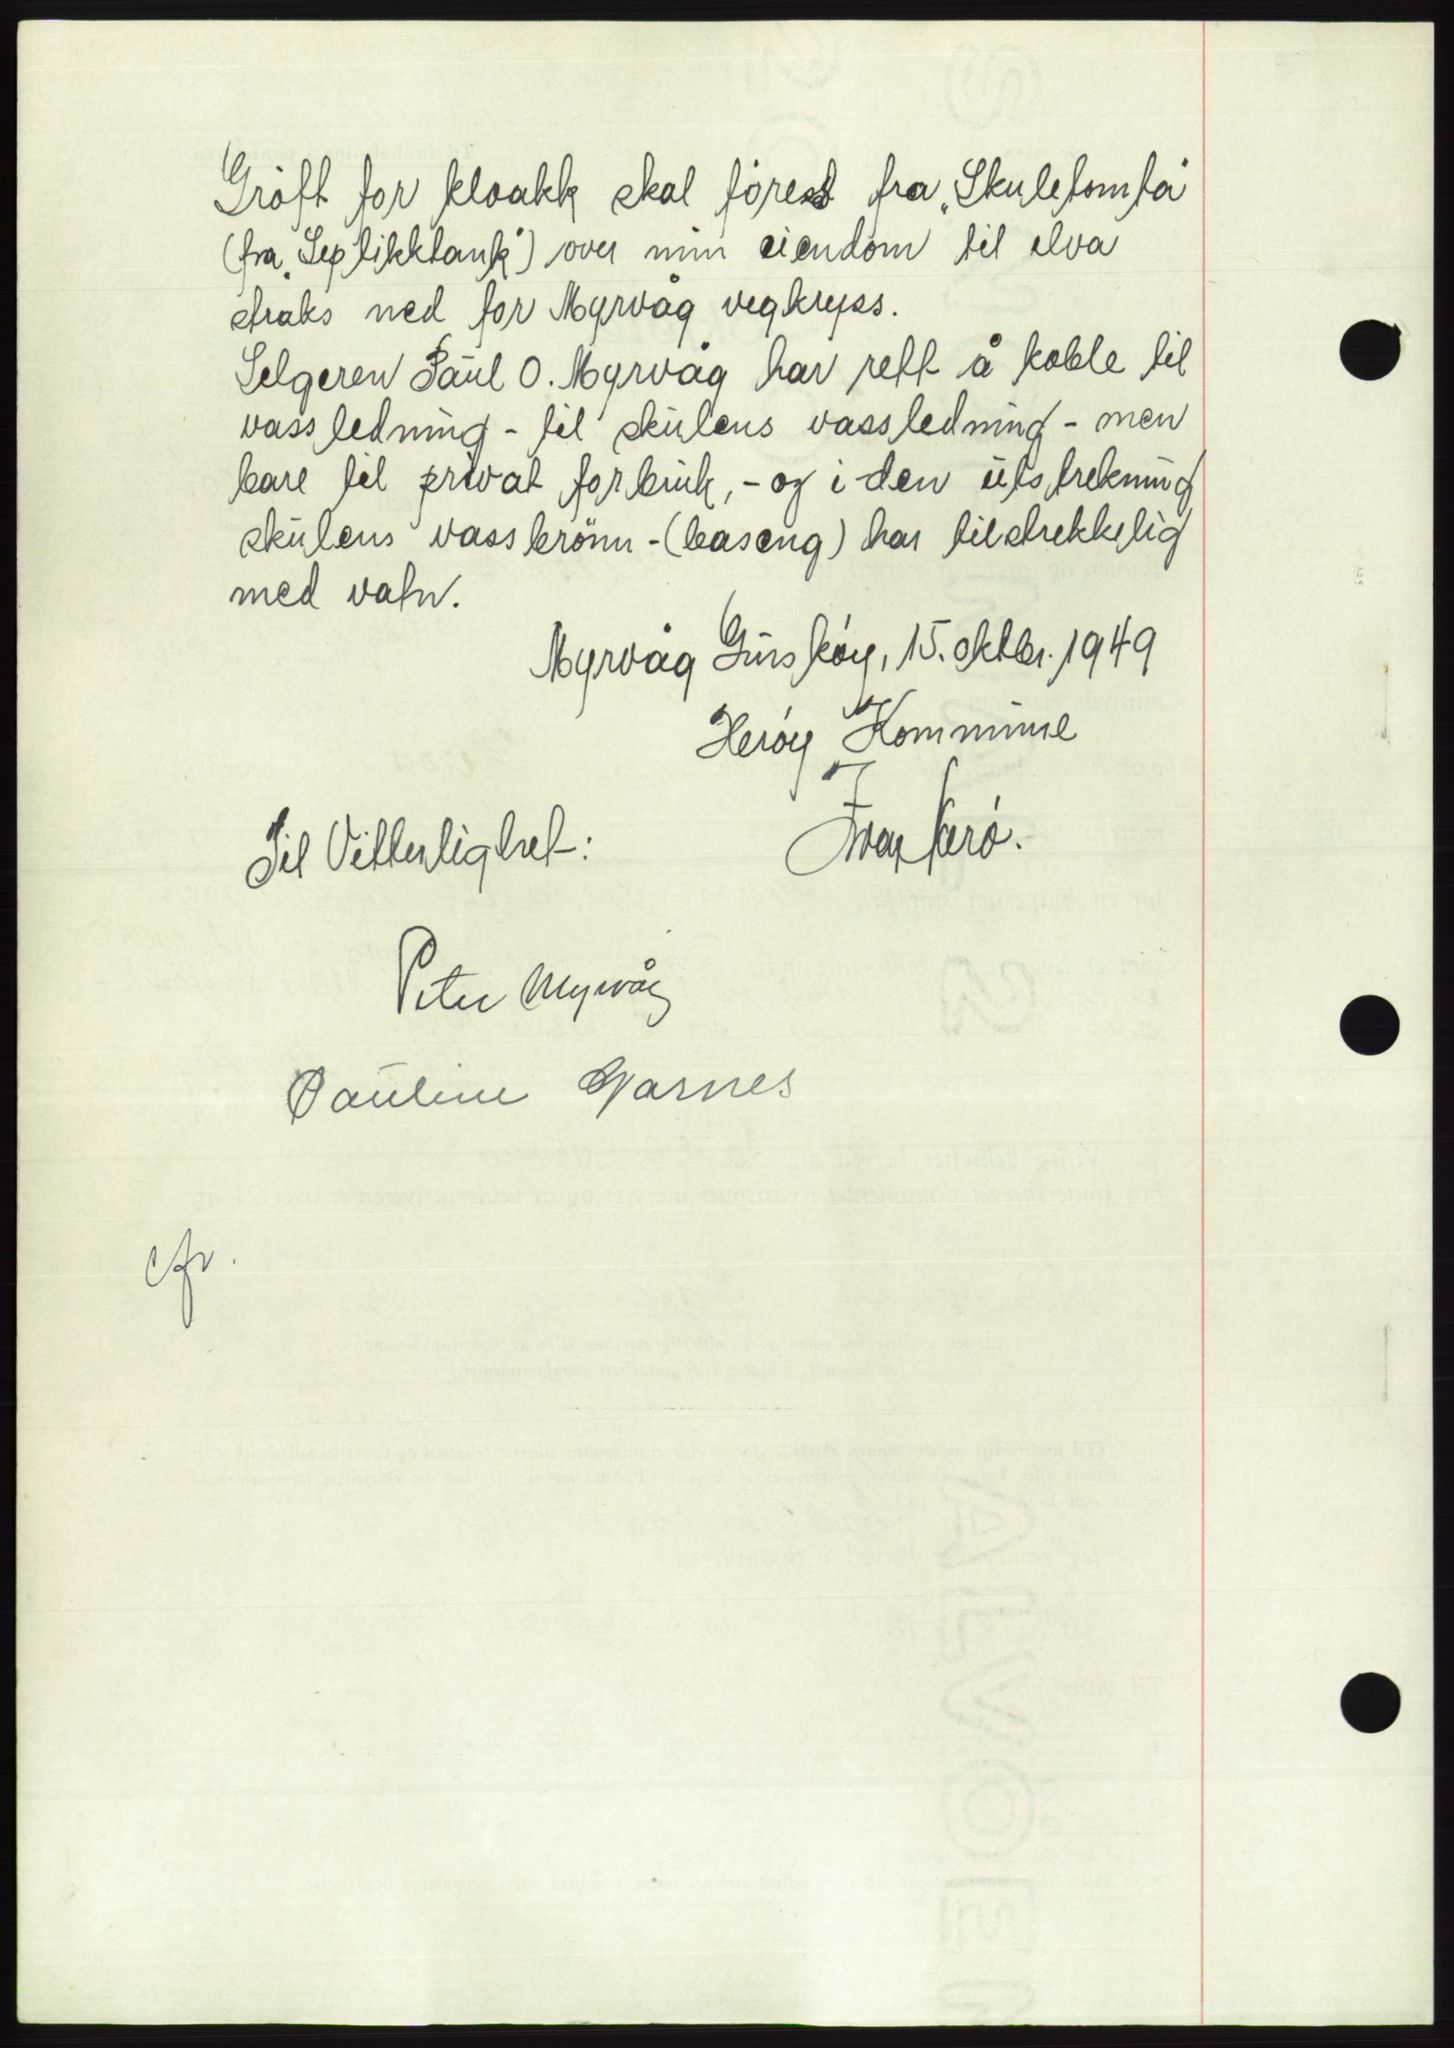 Grøft for kloakk skal føres fra „Skuletomta
(fra „Septikktank") over min eiendom til elva
straks ned for Myrvåg vegkryss.
Selgeren Paul O. Myrvåg har rett å koble til
vassledning - til skulens vassledning - men
bare til privat forbruk, - og i den utstrekning
skulens vassbrønn - (baseng) har tilstrekkelig
med vatn.
Myrvåg Gurskøy, 15. oktbr. 1949
Herøy Kommune
Til Vitterlighet:
Peter Myrvåg
Pauline Garnes